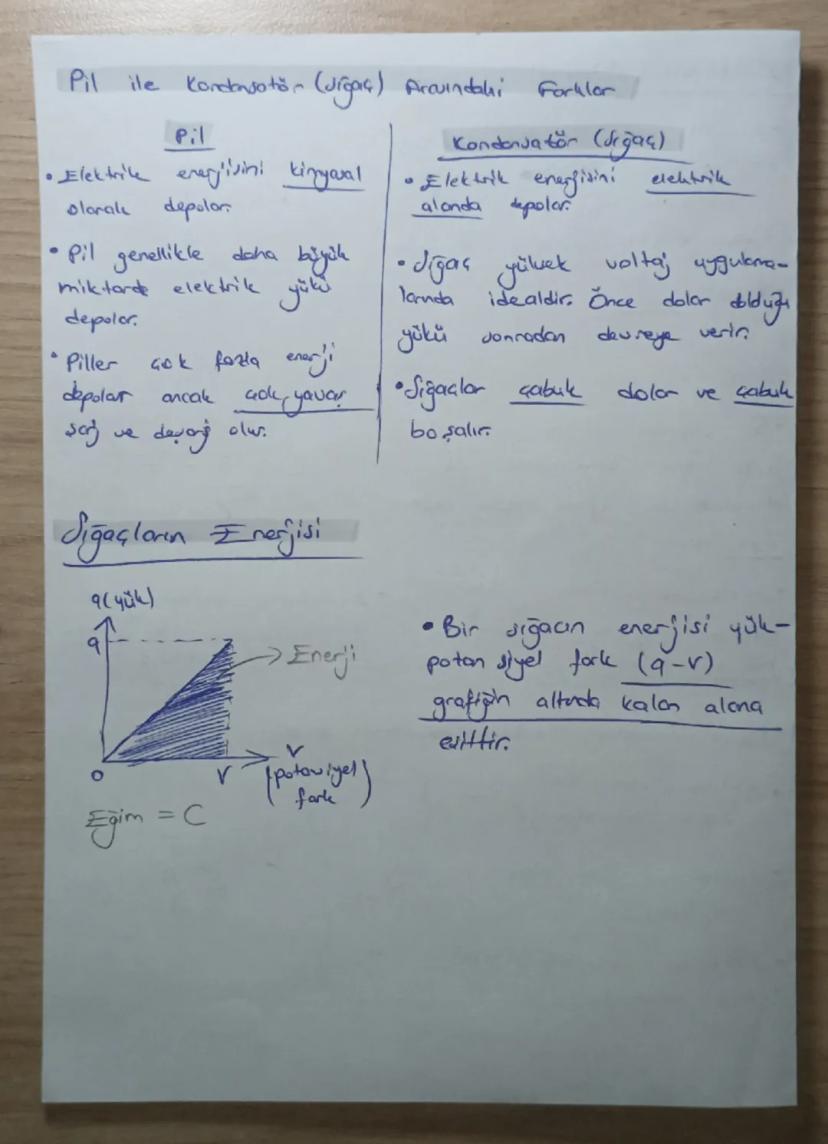 Pil ile Kondansatör (Sığaç) Arasındaki Farklar
Pil
• Elektrik enerjisini kimyasal
olarak depolar.
• Pil genellikle daha büyük
miktarda elektrik yükü
depolar.
• Piller çok fazla enerji
depolar ancak çok yavaş
şarj ve deşarj olur.
Kondansatör (Sığaç)
• Elektrik enerjisini elektrik
alanda depolar.
• Sığaç yüksek voltaj uygulama-
larında idealdir. Önce dolar dolduğu
yükü sonradan devreye verir.
• Sığaçlar çabuk dolar ve çabuk
boşalır.
Sığaçların Enerjisi
q(yük)
q
Enerji
0
V
V
(potansiyel
fark)
Eğim = C
• Bir sığacın enerjisi yük-
potansiyel fark (q-V)
grafiğin altında kalan alana
eşittir.